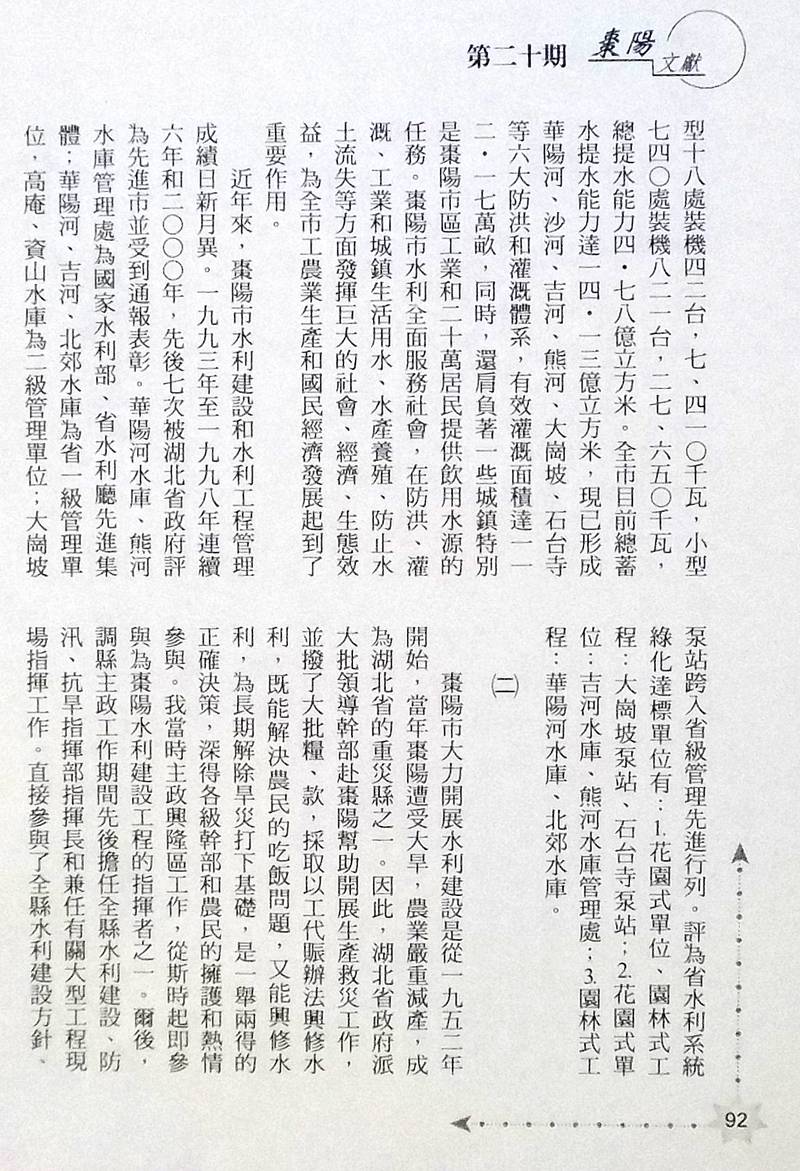 棗陽文獻
第二十期
型十八處裝機四二台，七、四一〇千瓦，小型
七四〇處裝機八二一台，二七、六五〇千瓦，
總提水能力四・七八億立方米。全市目前總蓄
水提水能力達一四・一三億立方米，現已形成
華陽河、沙河、吉河、熊河、大崗坡、石台寺
等六大防洪和灌溉體系，有效灌溉面積達一一
二・一七萬畝，同時，還肩負著一些城鎮特別
是棗陽市區工業和二十萬居民提供飲用水源的
任務。棗陽市水利全面服務社會，在防洪、灌
溉、工業和城鎮生活用水、水產養殖、防止水
土流失等方面發揮巨大的社會、經濟、生態效
益，為全市工農業生產和國民經濟發展起到了
重要作用。
近年來，棗陽市水利建設和水利工程管理
成績日新月異。一九九三年至一九九八年連續
六年和二〇〇〇年，先後七次被湖北省政府評
為先進市並受到通報表彰。華陽河水庫、熊河
水庫管理處為國家水利部、省水利廳先進集
體；華陽河、吉河、北郊水庫為省一級管理單
位，高庵、資山水庫為二級管理單位；大崗坡
泵站跨入省級管理先進行列。評為省水利系統
綠化達標單位有：1.花園式單位、園林式工
程：大崗坡泵站、石台寺泵站；2.花園式單
位：吉河水庫、熊河水庫管理處；3.園林式工
程：華陽河水庫、北郊水庫。
㈡
棗陽市大力開展水利建設是從一九五二年
開始，當年棗陽遭受大旱，農業嚴重減產，成
為湖北省的重災縣之一。因此，湖北省政府派
大批領導幹部赴棗陽幫助開展生產救災工作，
並撥了大批糧、款，採取以工代賑辦法興修水
利，既能解決農民的吃飯問題，又能興修水
利，為長期解除旱災打下基礎，是一舉兩得的
正確決策，深得各級幹部和農民的擁護和熱情
參與。我當時主政興隆區工作，從斯時起即參
與為棗陽水利建設工程的指揮者之一。爾後，
調縣主政工作期間先後擔任全縣水利建設、防
汛、抗旱指揮部指揮長和兼任有關大型工程現
場指揮工作。直接參與了全縣水利建設方針、
92